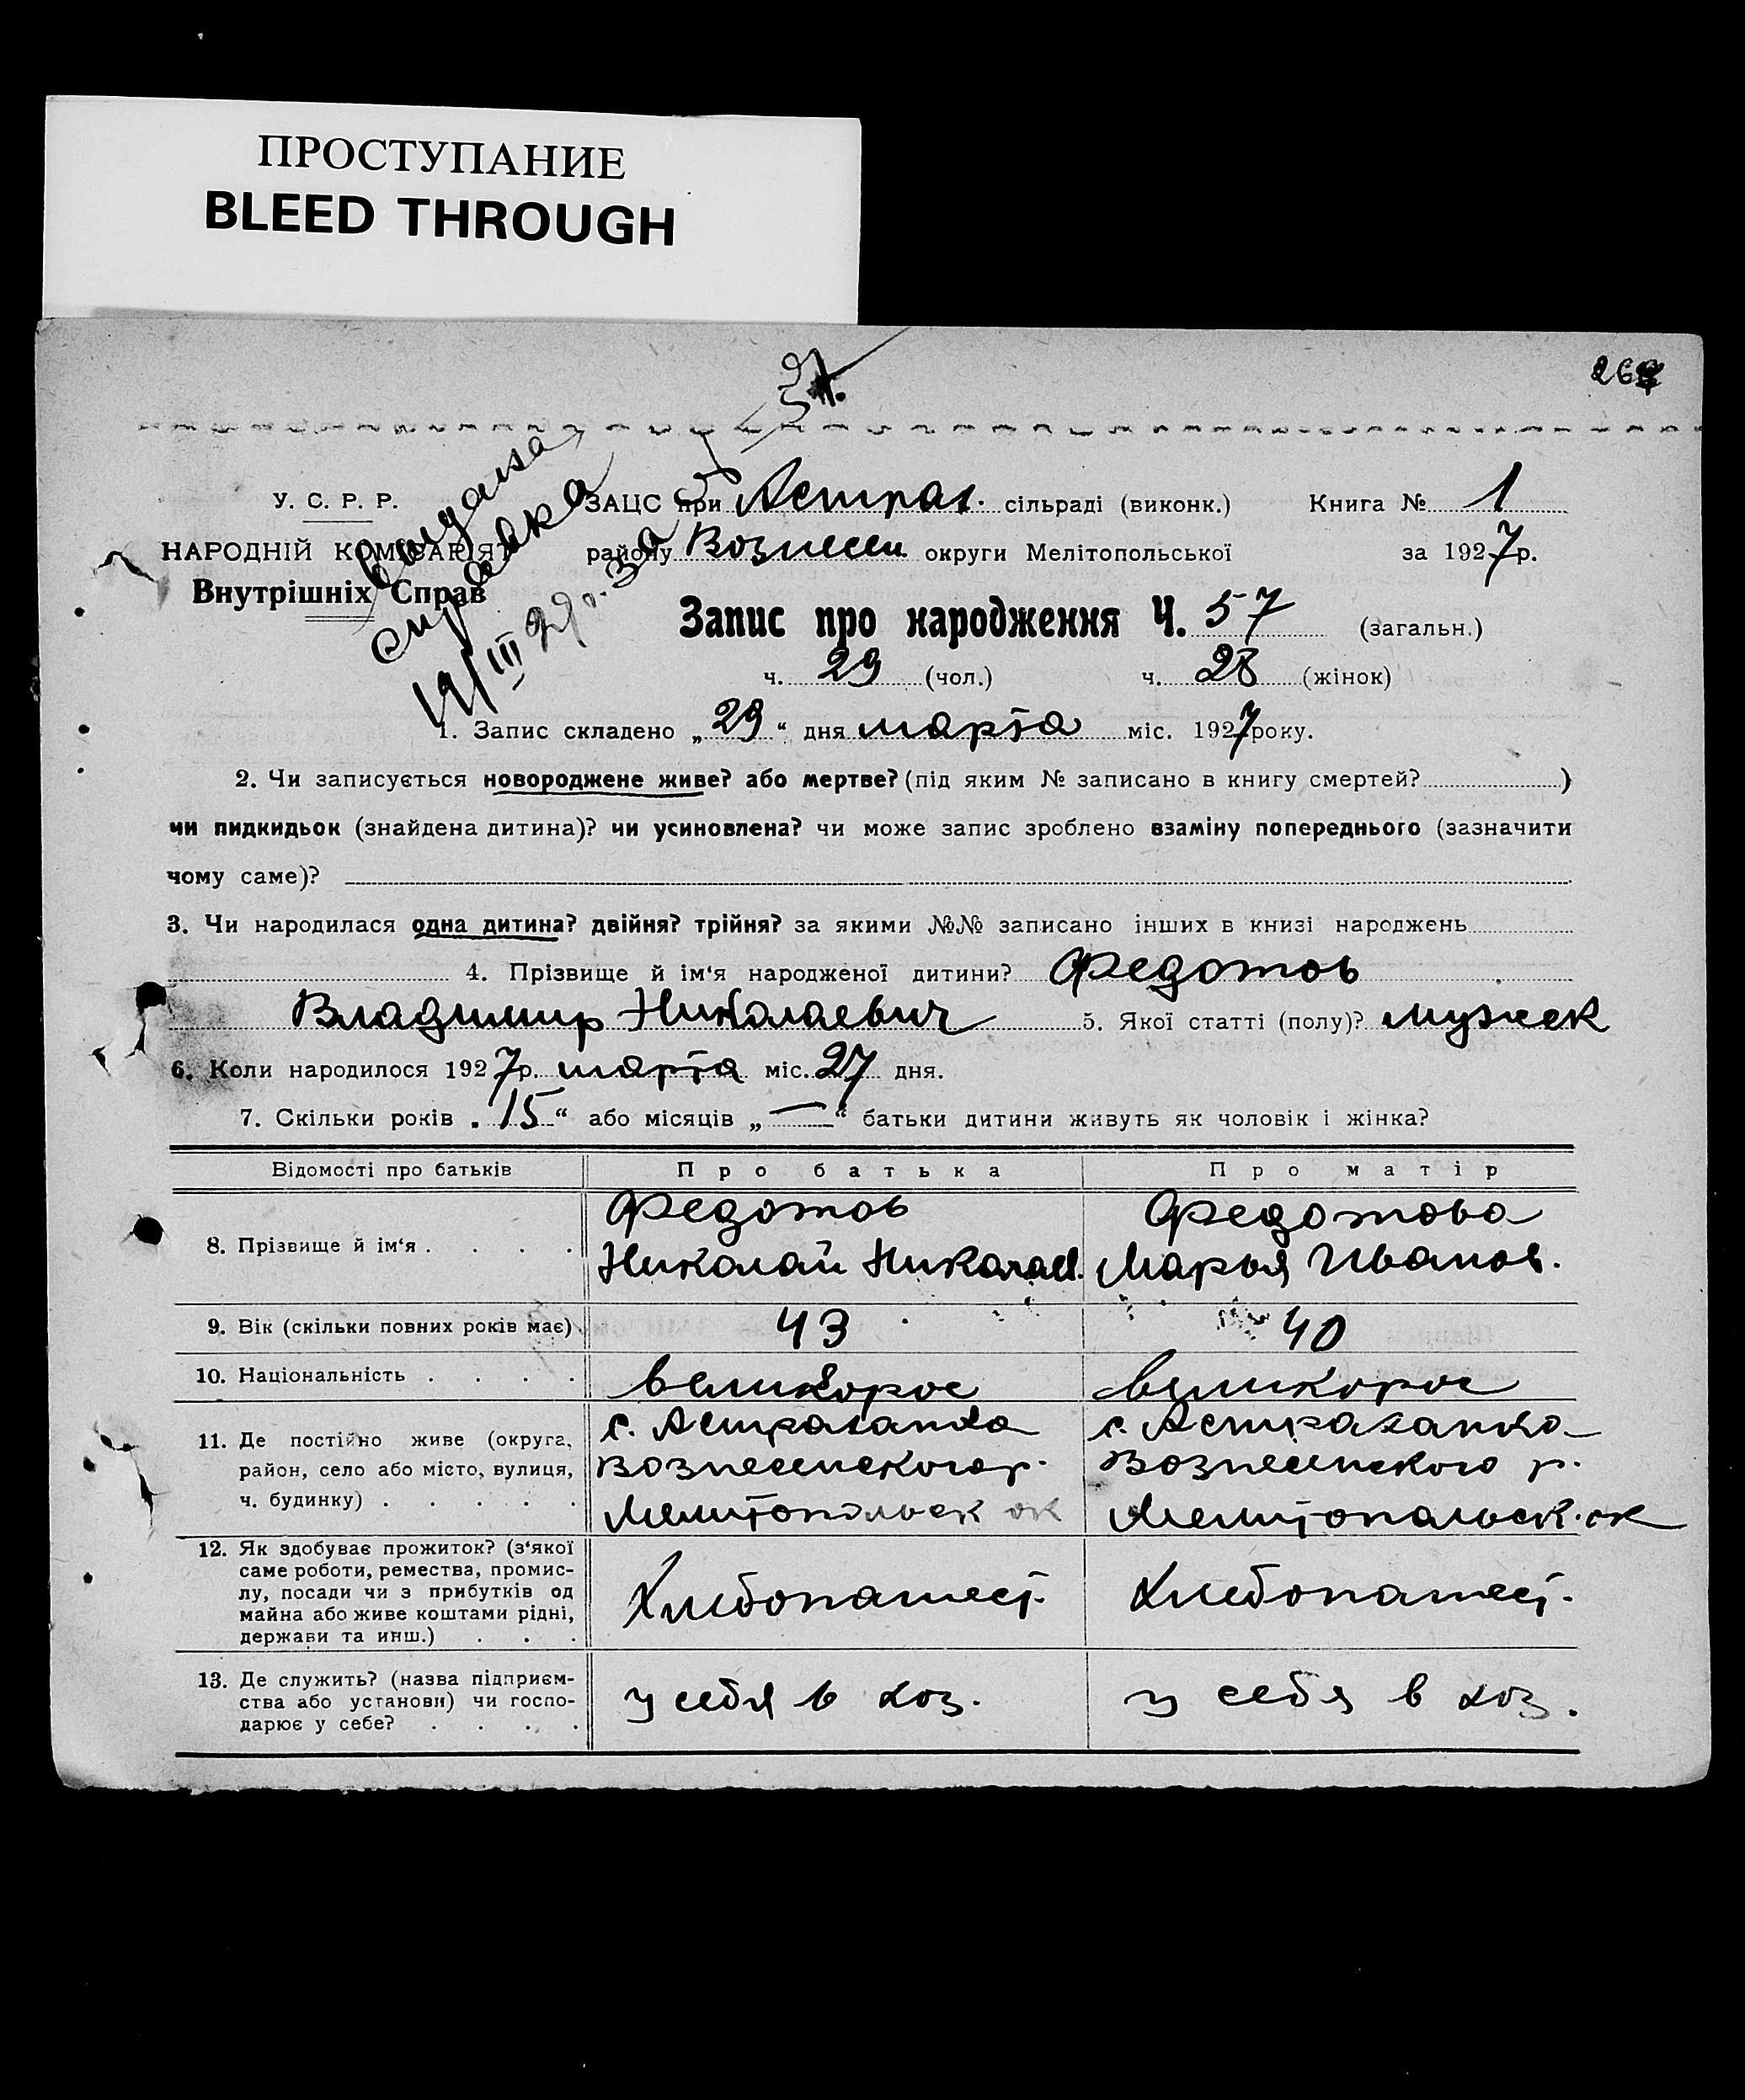 ПРОСТУПАНИЕ
BLEED THROUGH
У. С. Р. Р.
НАРОДНІЙ КОМІСАРІЯТ
Внутрішніх Справ
Выдана
справка
19/III
ЗАЦС при Астрах. сільраді (виконк.) Книга № 1
району Вознесен округи Мелітопольської за 1927р.
Запис про народження Ч. 57 (загальн.)
ч. 29 (чол.) ч. 28 (жінок)
1. Запис складено „29“ дня марта міс. 1927року.
2. Чи записується новороджене живе? або мертве? (під яким № записано в книгу смертей? )
чи пидкидьок (знайдена дитина)? чи усиновлена? чи може запис зроблено взаміну попереднього (зазначити
чому саме)?
3. Чи народилася одна дитина? двійня? трійня? за якими №№ записано інших в книзі народжень
4. Прізвище й ім‘я народженої дитини? Федотов
Владимир Николаевич 5. Якої статті (полу)? мужеск
6. Коли народилося 1927р. марта міс. 27 дня.
7. Скільки років „15“ або місяців „—“ батьки дитини живуть як чоловік і жінка?
Відомості про батьків Про батька Про матір
8. Прізвище й ім‘я . . . . Федотов Николай Николаев. Федотова Марья Иванов.
9. Вік (скільки повних років має) 43 40
10. Національність . . . . великорос великорос
11. Де постійно живе (округа, район, село або місто, вулиця, ч. будинку) . . . . . с. Астраханка Вознесенского р. Мелитопольск ок с. Астраханка Вознесенского р. Мелитопольск. ок
12. Як здобуває прожиток? (з‘якої саме роботи, ремества, промислу, посади чи з прибутків од майна або живе коштами рідні, держави та инш.) . . . Хлебопашест. Хлебопашест.
13. Де служить? (назва підприємства або установи) чи господарює у себе? . . . . у себя в хоз. у себя в хоз.